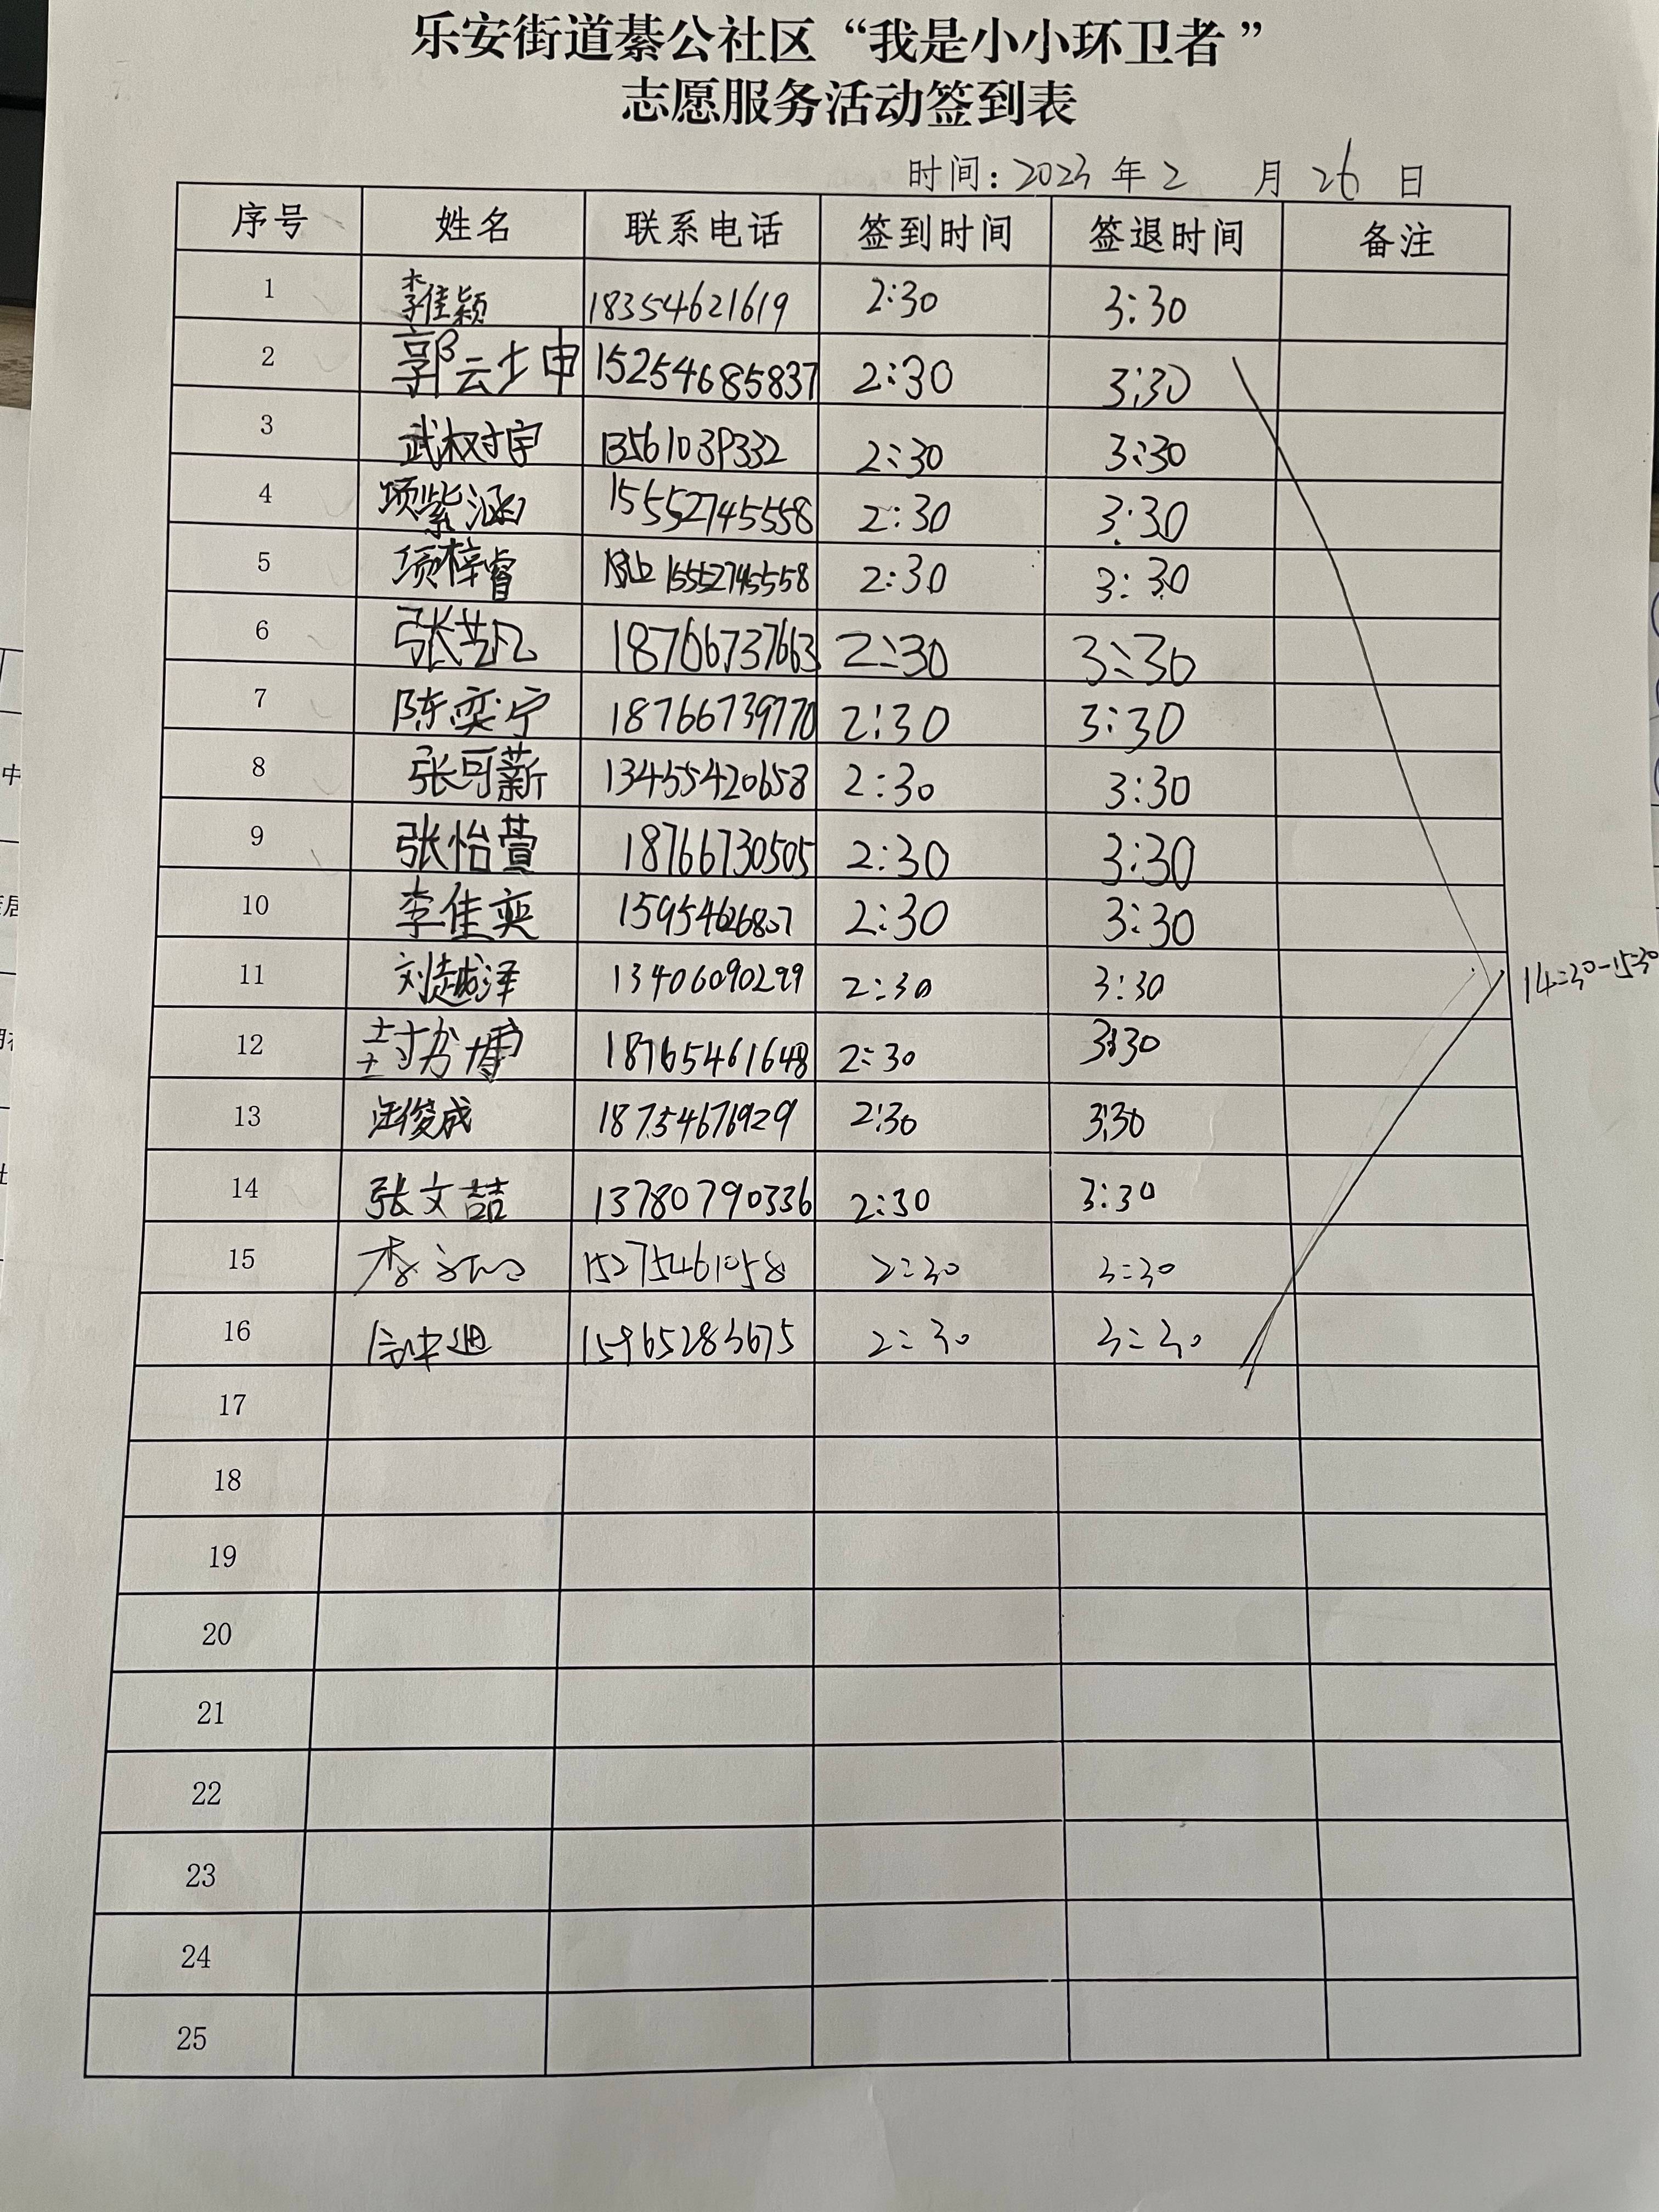 乐安街道綦公社区“我是小小环卫者”
志愿服务活动签到表
时间：2023 年 2 月 26 日
序号 姓名 联系电话 签到时间 签退时间 备注
1 李佳颖 18354621619 2:30 3:30
2 郭云坤 15254685837 2:30 3:30
3 武权宇 13561039332 2:30 3:30
4 项紫涵 15552745558 2:30 3:30
5 项梓睿 15552745558 2:30 3:30
6 张芸凡 18706737663 2:30 3:30
7 陈奕宁 18766739770 2:30 3:30
8 张可薪 13455420658 2:30 3:30
9 张怡萱 18766730505 2:30 3:30
10 李佳奕 2:30 3:30
11 刘越泽 13406090299 2:30 3:30
12 18765461648 2:30 3:30
13 俊成 18754676929 2:30 3:30
14 张文喆 13780790336 2:30 3:30
15 李 15275461058 2:30 3:30
16 15965283675 2:30 3:30
14:30-15:30
17
18
19
20
21
22
23
24
25